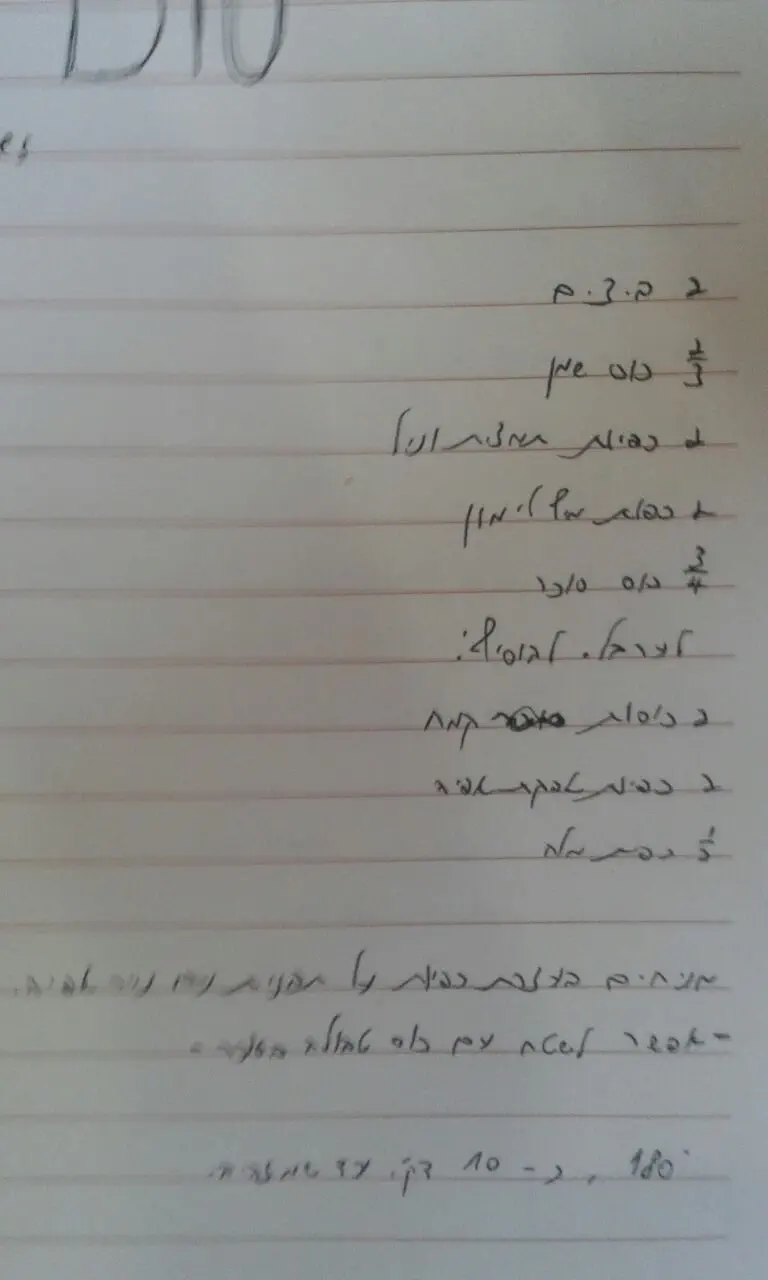 2 ב.צ.ים
2/3 כוס שמן
2 כפיות תמצית וניל
2 כפות מיץ לימון
3/4 כוס סוכר
לערבל. להוסיף:
2 כוסות קמח
2 כפיות אבקת אפיה
מלח
מניחים בעזרת כפית על תבנית עם נייר אפיה.
- אפשר לשטח עם כוס טבולה
180°, כ- 10 דק'. עד